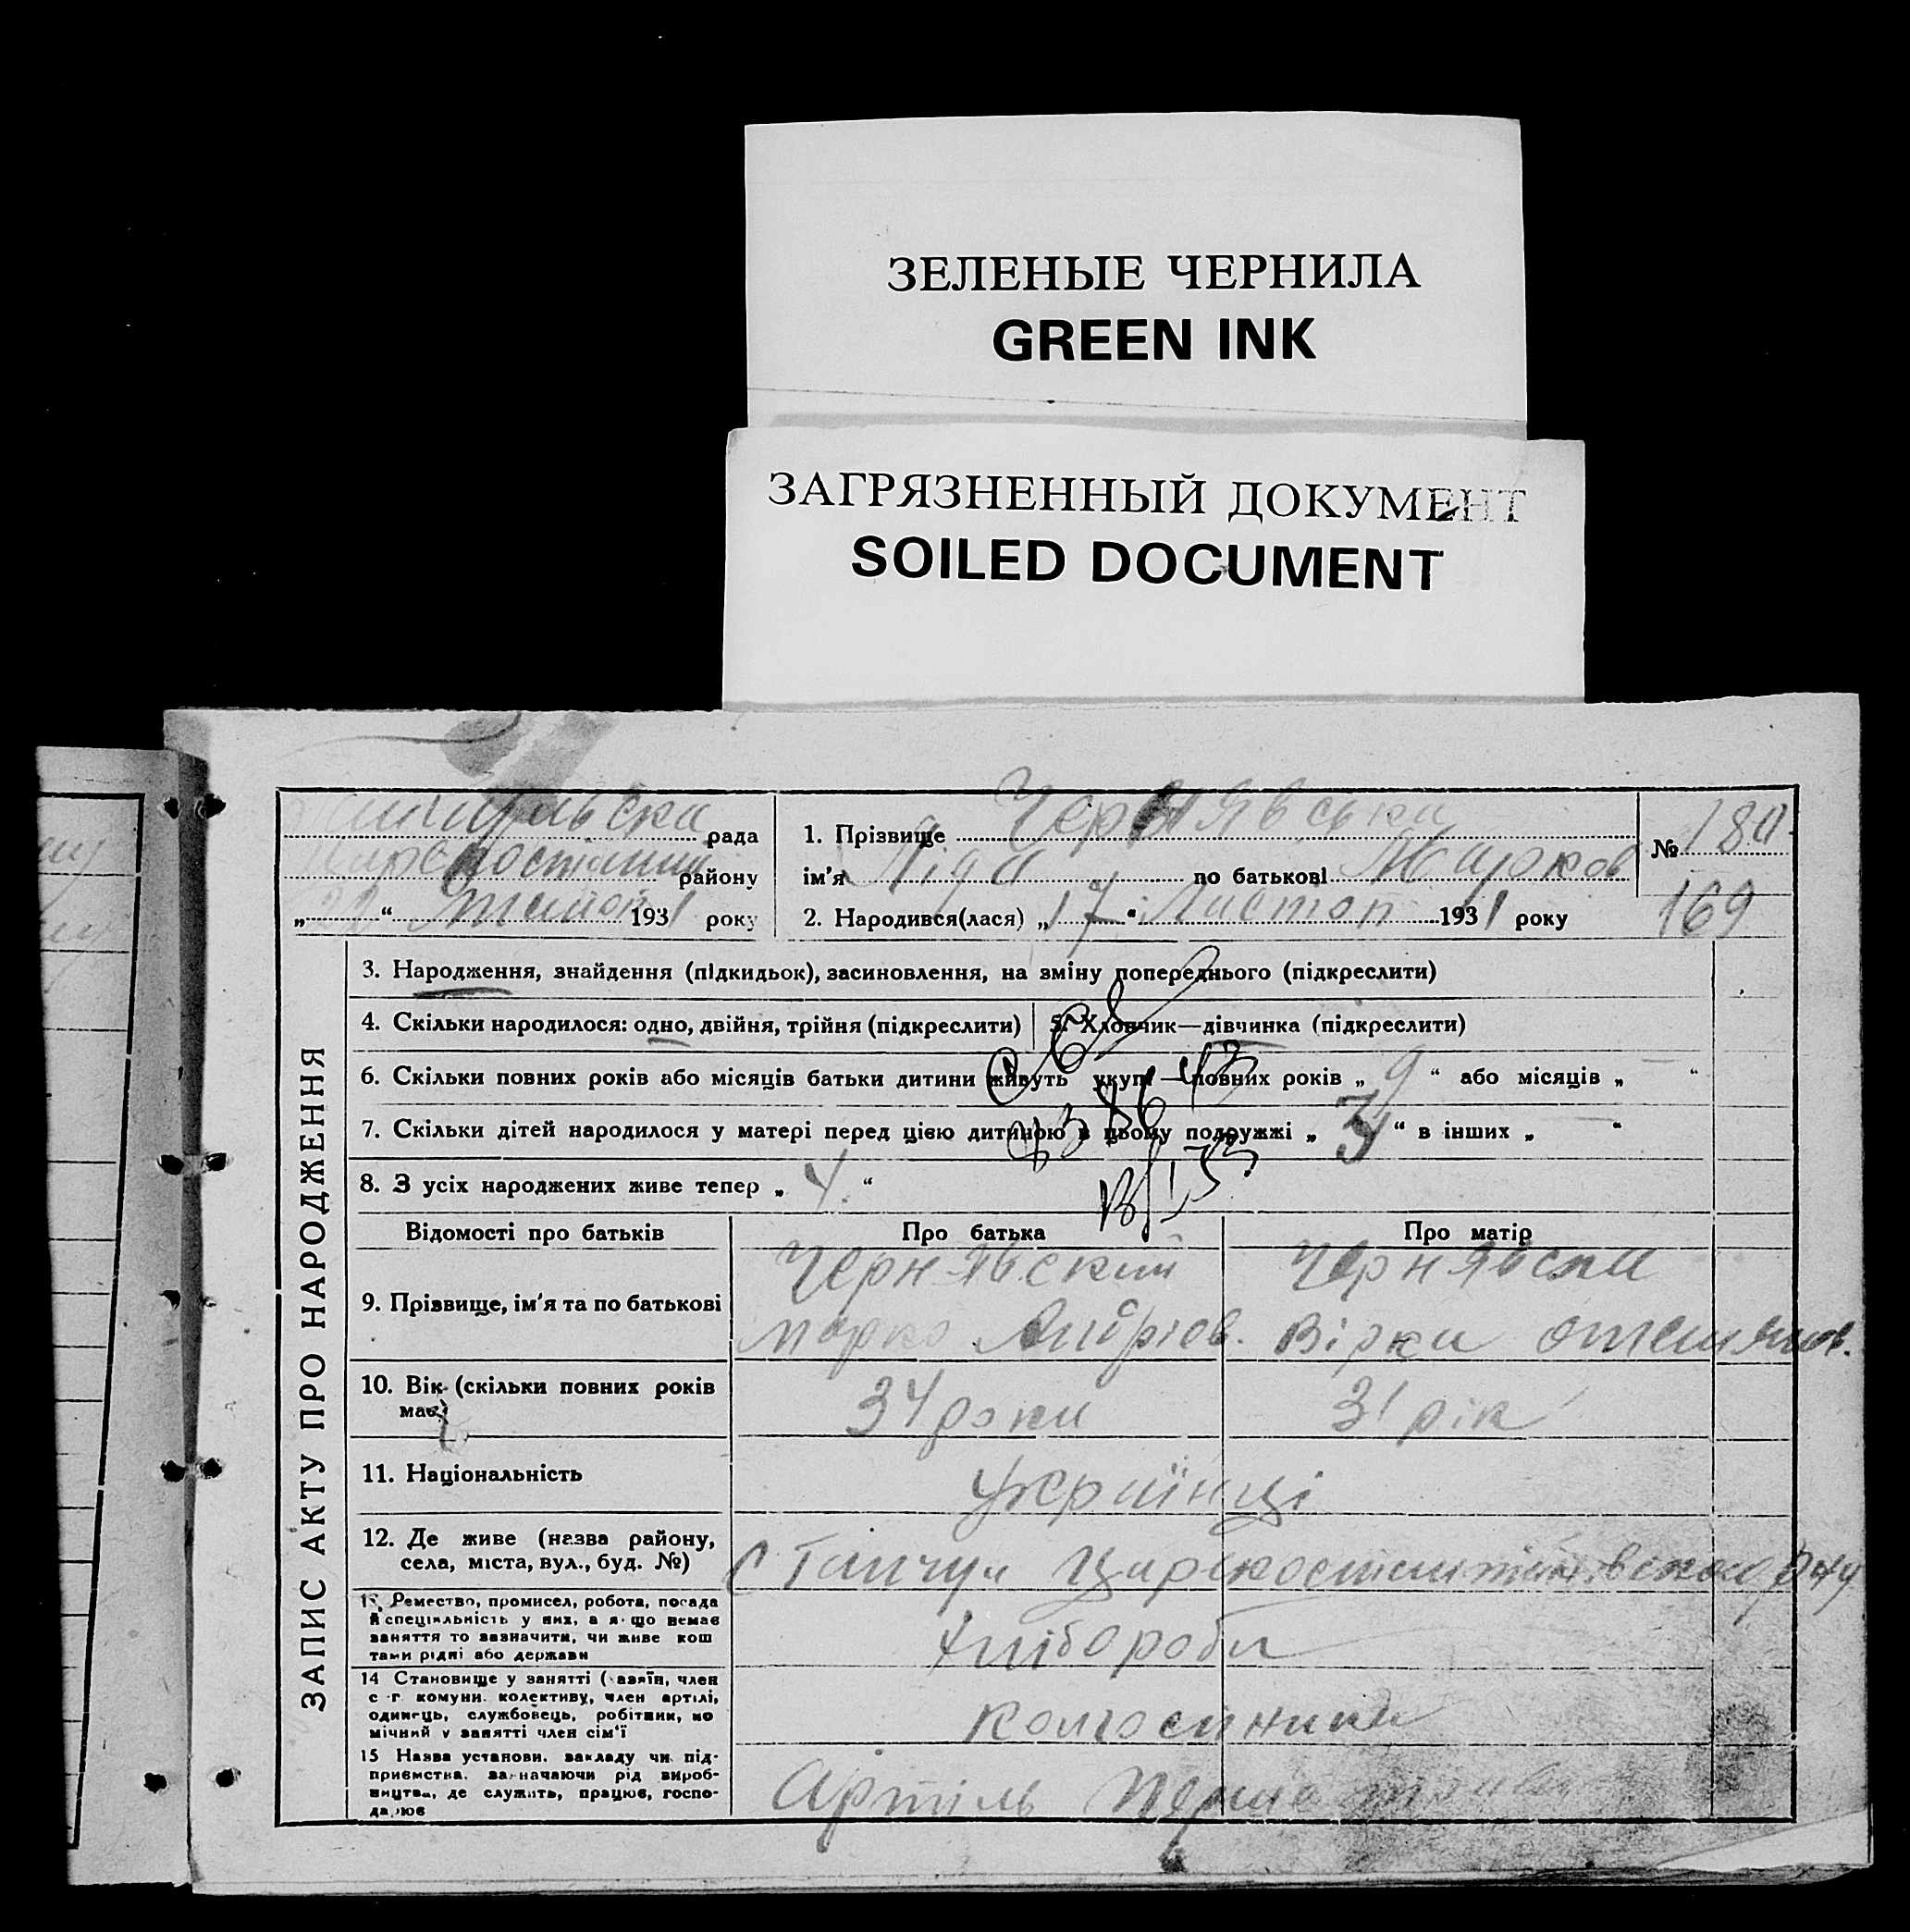 ЗЕЛЕНЫЕ ЧЕРНИЛА
GREEN INK
ЗАГРЯЗНЕННЫЙ ДОКУМЕНТ
SOILED DOCUMENT
рада
району
„ “ 1931 року
1. Прізвище Чернявська
ім'я Ліда по батькові Марков
2. Народився(лася) „17“ Листоп 1931 року
№ 180
169
ЗАПИС АКТУ ПРО НАРОДЖЕННЯ
3. Народження, знайдення (підкидьок), засиновлення, на зміну попереднього (підкреслити)
4. Скільки народилося: одно, двійня, трійня (підкреслити)
5. Хлопчик—дівчинка (підкреслити)
6. Скільки повних років або місяців батьки дитини живуть укупі — повних років „ 9 “ або місяців „ — “
7. Скільки дітей народилося у матері перед цією дитиною в цьому подружжі „ 3 “ в інших „ — “
8. З усіх народжених живе тепер „ 4. “
Відомості про батьків
Про батька
Про матір
9. Прізвище, ім'я та по батькові
Чернявский
Марко Андріев.
Чернявска
Вірка
10. Вік (скільки повних років
має)
34 роки
31 рік
11. Національність
Українці
12. Де живе (назва району,
села, міста, вул., буд. №)
С Гайчул Царекостянтинівского р-ну
13. Ремество, промисел, робота, посада
й спеціяльність у них, а якщо немає
заняття то зазначити, чи живе кош
тами рідні або держави
Хлібороби
14 Становище у занятті (хазяїн, член
с.-г. комуни, колективу, член артілі,
одинець, службовець, робітник, по
мічний у занятті член сім'ї
Колгоспники
15 Назва установи, закладу чи під-
приємства, зазначаючи рід вироб-
ництва, де служить, працює, госпо-
дарює
Артіль